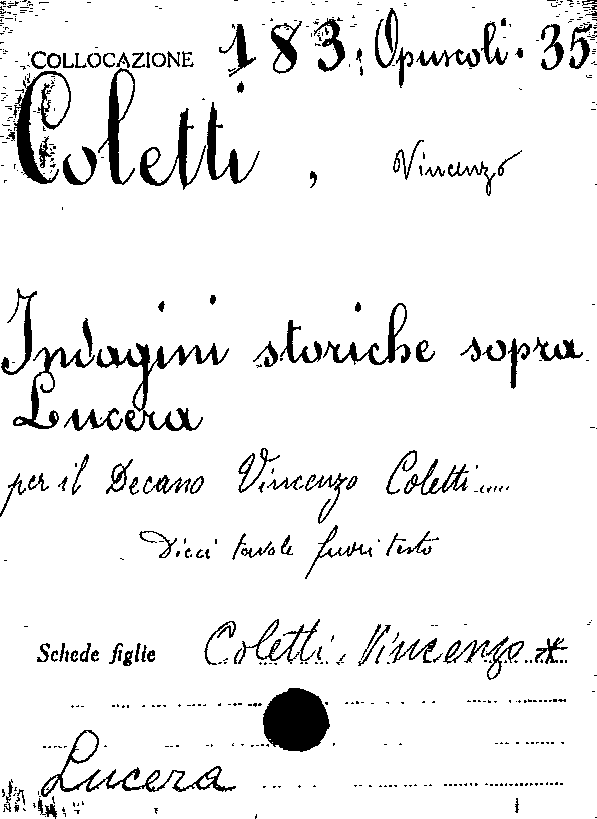 COLLOCAZIONE 183. Opuscoli. 35
Coletti, Vincenzo
Indagini storiche sopra
Lucera
per il Decano Vincenzo Coletti....
Dieci tavole fuori testo
Schede figlie Coletti, Vincenzo *
Lucera